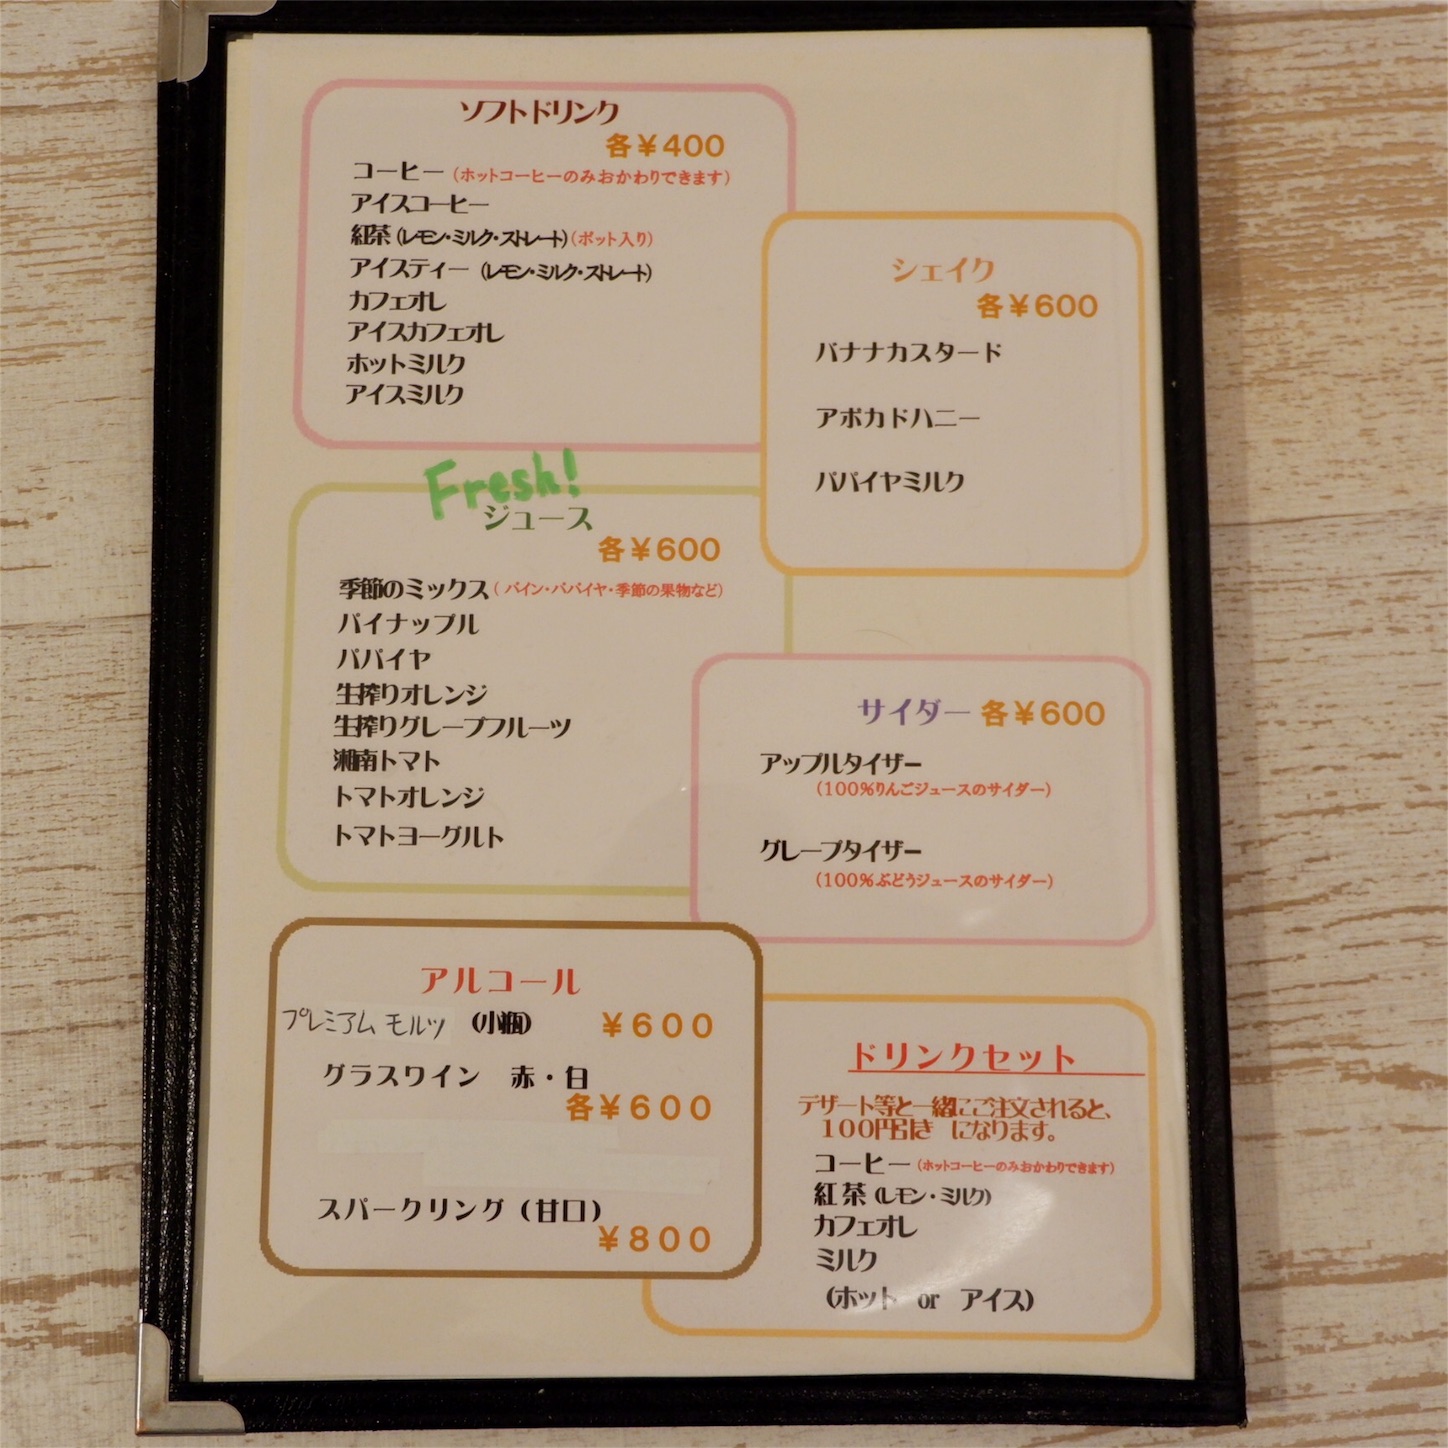 ソフトドリンク
各￥400
コーヒー (ホットコーヒーのみおかわりできます)
アイスコーヒー
紅茶 (レモン・ミルク・ストレート) (ポット入り)
アイスティー (レモン・ミルク・ストレート)
カフェオレ
アイスカフェオレ
ホットミルク
アイスミルク
シェイク
各￥600
バナナカスタード
アボカドハニー
パパイヤミルク
Fresh!
ジュース
各￥600
季節のミックス (パイン・パパイヤ・季節の果物など)
パイナップル
パパイヤ
生搾りオレンジ
生搾りグレープフルーツ
湘南トマト
トマトオレンジ
トマトヨーグルト
サイダー 各￥600
アップルタイザー
(100%りんごジュースのサイダー)
グレープタイザー
(100%ぶどうジュースのサイダー)
アルコール
プレミアム モルツ (小瓶) ￥600
グラスワイン 赤・白
各￥600
スパークリング (甘口)
￥800
ドリンクセット
デザート等と一緒にご注文されると、
100円引き になります。
コーヒー (ホットコーヒーのみおかわりできます)
紅茶 (レモン・ミルク)
カフェオレ
ミルク
(ホット or アイス)